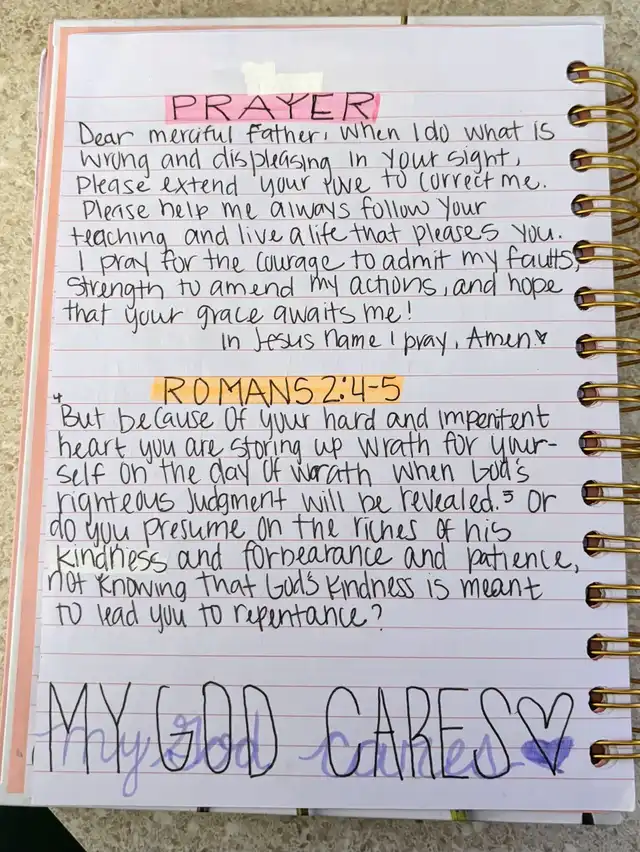 PRAYER
Dear merciful Father, when I do what is
wrong and displeasing in your sight,
Please extend your love to correct me.
Please help me always follow your
teaching and live a life that pleases you.
I pray for the courage to admit my faults,
strength to amend my actions, and hope
that your grace awaits me!
In Jesus name I pray, Amen.
ROMANS 2:4-5
4 But because of your hard and impenitent
heart you are storing up wrath for your-
self on the day of wrath when God's
righteous Judgment will be revealed. 5 Or
do you presume on the riches of his
kindness and forbearance and patience,
not knowing that God's kindness is meant
to lead you to repentance?
MY GOD CARES
my God cares